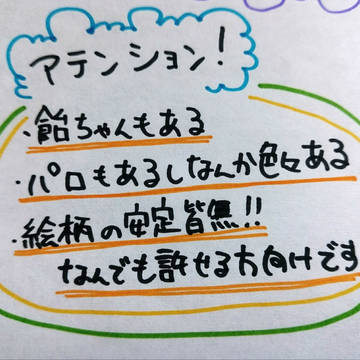 アテンション!
・飴ちゃんもある
・パロもあるしなんか色々ある
・絵柄の安定皆無!!
なんでも許せる方向けです